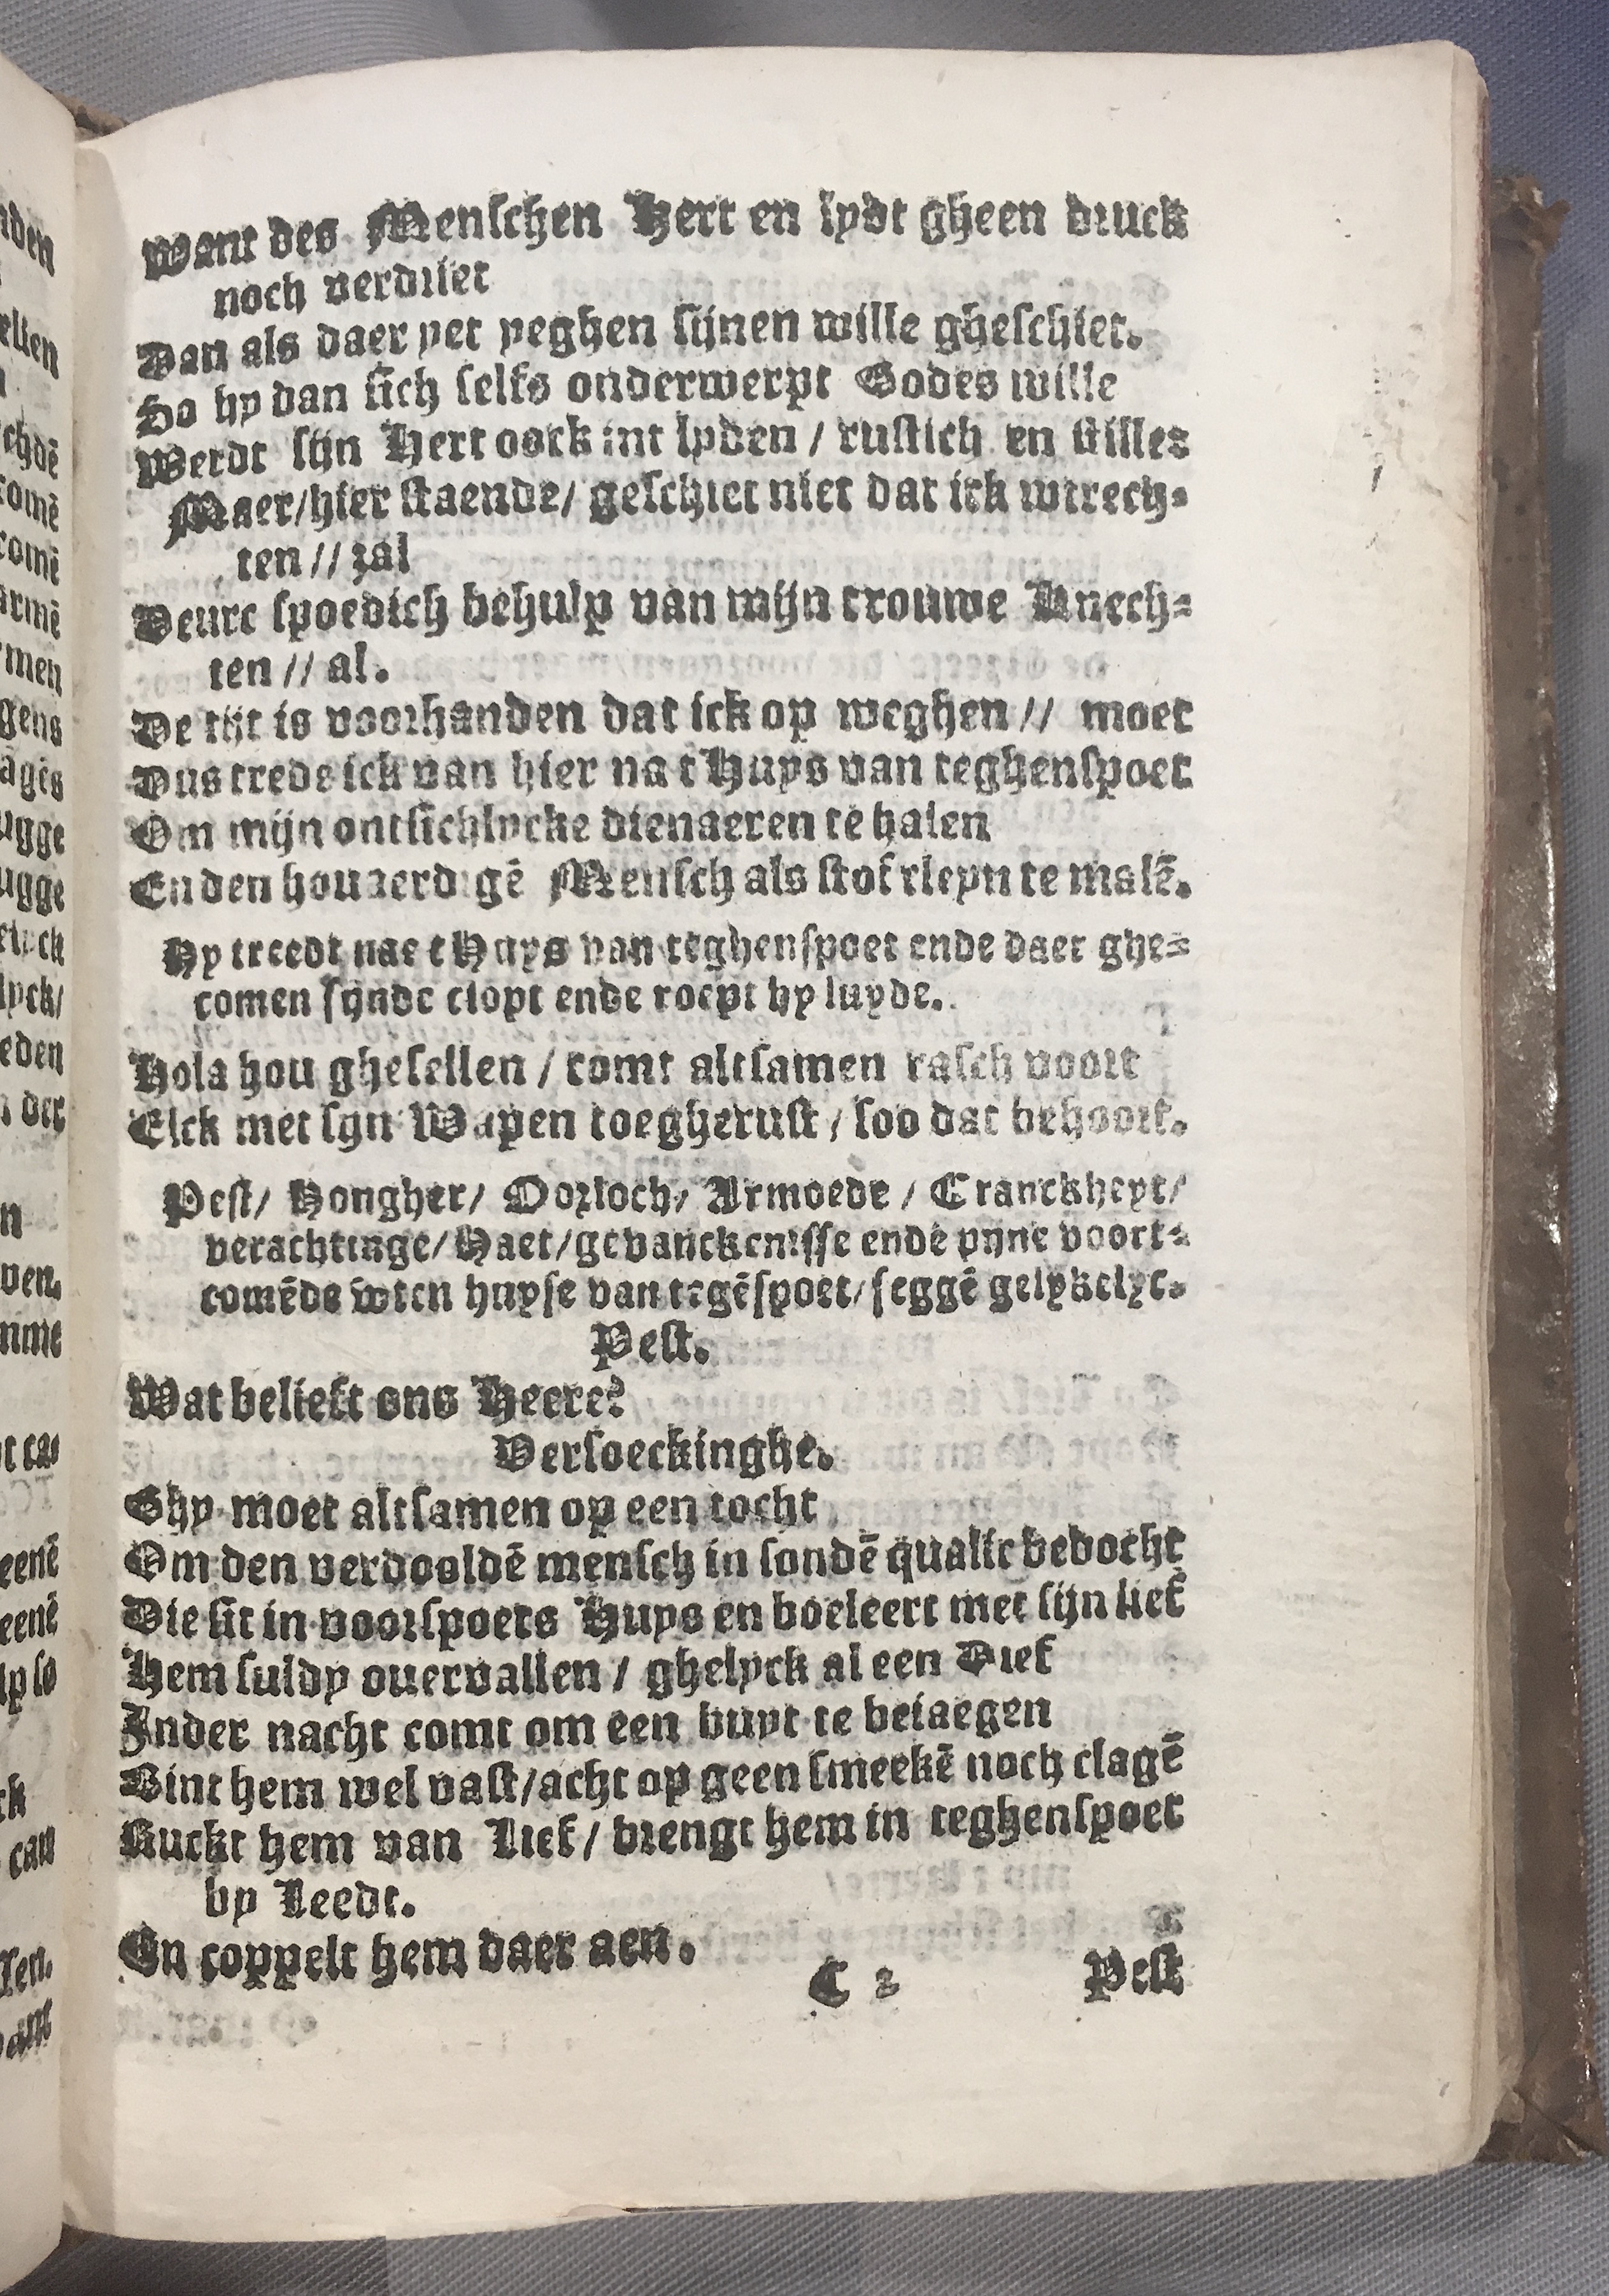 Want des Menschen Hert en lydt gheen druck
noch verdriet
Dan als daer yet yeghen sijnen wille gheschiet.
So hy dan sich selfs onderwerpt Godes wille
Werdt sijn Hert oock int lyden / rustich en stille:
Maer/hier staende/ geschiet niet dat ick wtrech-
ten // zal
Deurc spoedich behulp van mijn trouwe Knech-
ten // al.
De tijt is voorhanden dat ick op weghen // moet
Dus trede ick van hier na t Huys van teghenspoet
Om mijn ontsichlycke dienaeren te halen
En den houaerdigē Mensch als stof cleyn te malē.
Hy treedt nae t Huys van teghenspoet ende daer ghe-
comen sijnde clopt ende roept hy luyde.
Hola hou ghesellen / comt altsamen rasch voort
Elck met sijn Wapen toegherust / soo dat behoort.
Pest/ Hongher/ Oorloch/ Armoede / Cranckheyt/
verachtinge/ Haet/gevanckenisse ende pijne voort-
comēde wten huyse van tegēspoet/ seggē gelykelyc.
Pest.
Wat belieft ons Heere?
Versoeckinghe.
Ghy moet altsamen op een tocht
Om den verdooldē mensch in sondē qualic bedocht
Die sit in voorspoets Huys en boeleert met sijn lief
Hem suldy overvallen / ghelyck al een Dief
Inder nacht comt om een buyt te beiaegen
Bint hem wel vast/acht op geen smeekē noch clagē
Ruckt hem van Lief / brengt hem in teghenspoet
by Leedt.
En coppelt hem daer aen.
C 2 Pest